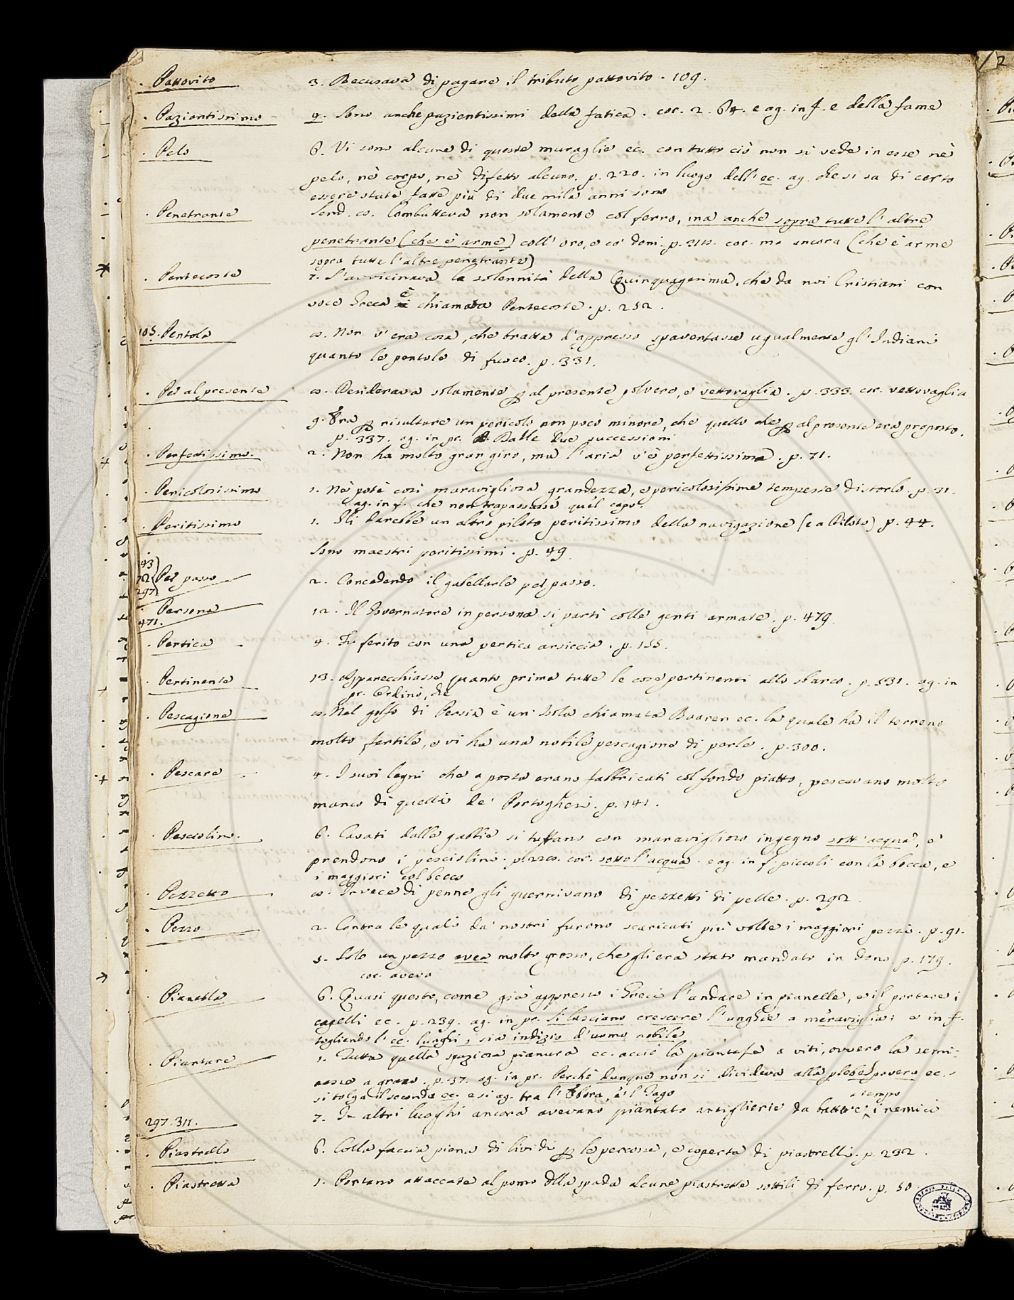 Pattovito 3. Recusava di pagare il tributo pattovito. 109.
Pazientissimo 4. Sono anche pazientissimi della fatica. cor. 2. 64. e ag. in f. e della fame
Pelo 6. Vi sono alcune di queste muraglie ec. con tutto ciò non si vede in esse nè
pelo, nè corpo, nè difetto alcuno. p. 220. in luogo dell' ec. ag. che si sa di certo
essere state fatte più di due mila anni sono
Penetrante Combatteva non solamente col ferro, ma anche sopra tutte l'altre
penetrante (che è arme) coll' oro, e co' doni. p. cor. ma ancora (che è arme
sopra tutte l'altre penetrante)
Pentecoste 7. S'avvicinava la solennità della Quinquagesima, che da noi Cristiani con
voce Greca è chiamata Pentecoste. p. 252.
105. Pentola Non v'era cosa, che tratta d'appresso spaventasse ugualmente gl' Indiani
quanto le pentole di fuoco. p. 331.
Per al presente Desiderava solamente per al presente polvere, e vettovaglia. p. 333. cor. vettovaglia
9. Era per risultare un pericolo non poco minore, che quello che per al presente era proposto.
p. 337. ag. in pr. Dalle due successioni
Perfettissimo. 2. Non ha molto gran giro, ma l'aria v'è perfettissima. p. 71.
Pericolosissimo 1. Nè potè così maravigliosa grandezza, e pericolosissime tempeste distorlo. p. 31.
ag. in f. che non trapassasse quel capo.
Peritissimo 1. Gli darebbe un altro piloto peritissimo della navigazione (e a Piloto) p. 44.
Sono maestri peritissimi. p. 49.
Pel passo 2. Concedendo il gabellarle pel passo.
297
Persona 12. Il Governatore in persona si partì colle genti armate. p. 479.
471.
Pertica 4. Fu ferito con una pertica arsiccia. p. 155.
Pertinente 13. Apparecchiasse quanto prima tutte le cose pertinenti allo sbarco. p. 531. ag. in
pr. Ordinò, che
Pescagione Nel golfo di Persia è un' Isola chiamata Baaren ec. la quale ha il terreno
molto fertile, e vi ha una nobile pescagione di perle. p. 300.
Pescare 4. I suoi legni che a posta erano fabbricati col fondo piatto, pescavano molto
manco di quelli de' Portoghesi. p. 141.
Pesciolino. 6. Cavati dalle gabbie si tuffano con maraviglioso ingegno sott' acqua, e
prendono i pesciolini. cor. sotto l'acqua. e ag. in f. piccoli con la bocca, e
i maggiori col becco
Pezzetto In vece di penne gli guernivano di pezzetti di pelle. p. 292
Pezzo 2. Contra le quali da' nostri furono scaricati più volte i maggiori pezzi. p. 91.
5. Solo un pezzo avea molto grosso, che gli era stato mandato in dono p. 179.
cor. aveva
Pianella 6. Quasi questo, come già appresso i Greci l'andare in pianelle, e il portare i
capelli ec. p. 239. ag. in pr. Si lasciano crescere l'unghie a maraviglia: e in f.
togliendo l' ec. lunghi, sia indizio d'uomo nobile
Piantare 1. Tutta quella spaziosa pianura ec. acciò la piantasse a viti, ovvero la semi-
nasse a grano. p. 37. ag. in pr. Perchè dunque non si divideva alla plebe povera ec.
si tolga il secondo ec. e si ag. tra l' Ebora, e l' Tago
a tempo
7. In altri luoghi ancora avevano piantato artiglierie da battere i nemici
297. 311.
Piastrello 6. Colla faccia piena di lividi per le percosse, e coperta di piastrelli. p. 232.
Piastretta 1. Portano attaccate al pomo della spada alcune piastrette sottili di ferro. p. 50